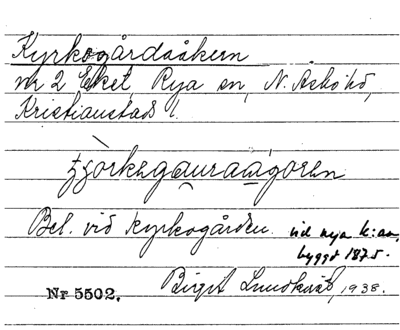 Kyrkogårdsåkern
nr 2 Eket, Rya sn, N. Åsbo hd,
Kristianstads l.
Bel. vid kyrkogården. vid nya k:an,
byggd 1875.
Nr 5502. Birgit Lundkvist, 1938.